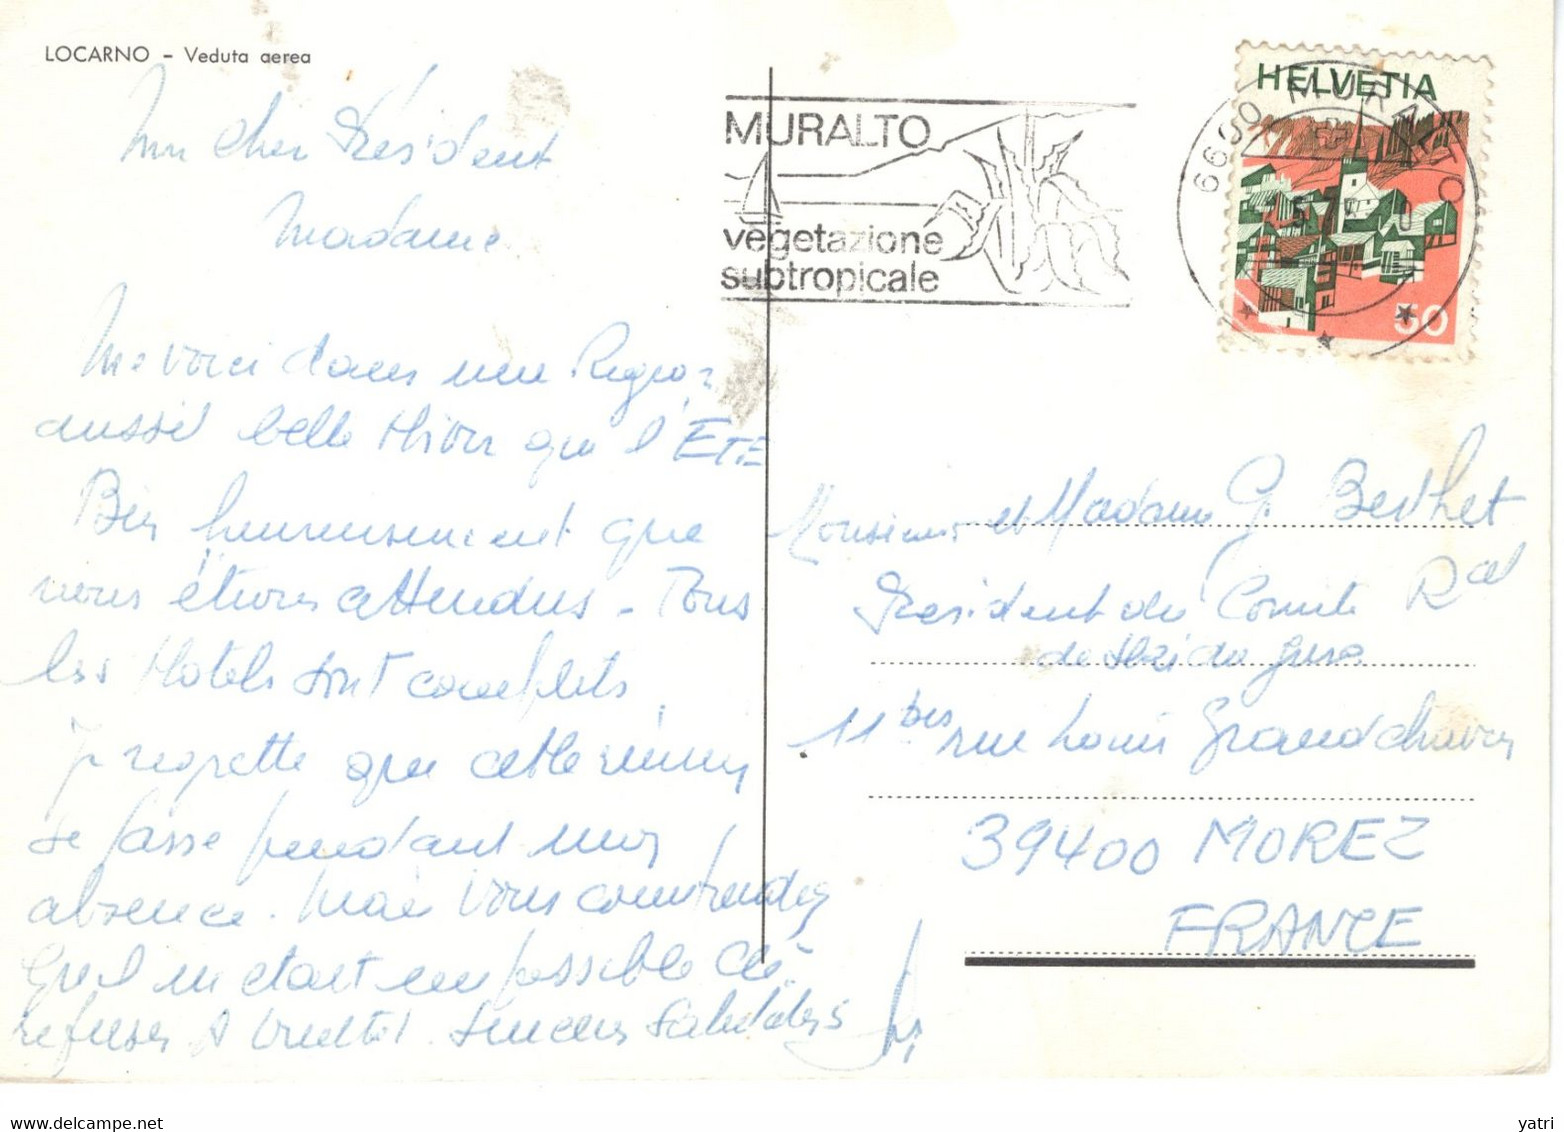 LOCARNO – Veduta aerea
Mon cher Président
Madame
Me voici dans une Région
aussi belle Hiver que l'ETE
Bien heureusement que
nous étions attendus - Tous
les Hotels sont complets
Je regrette que cette réunion
se fasse pendant mon
absence. Mais vous comprendrez
qu'il m'était impossible de
refuser Sincères Salutations
MURALTO
vegetazione
subtropicale
6600 MURALTO
HELVETIA
50
Monsieur et Madame G. Berthet
Président du Comité Ral
de Ski du Jura
11 bis rue Louis Grandchavin
39400 MOREZ
FRANCE
yatri